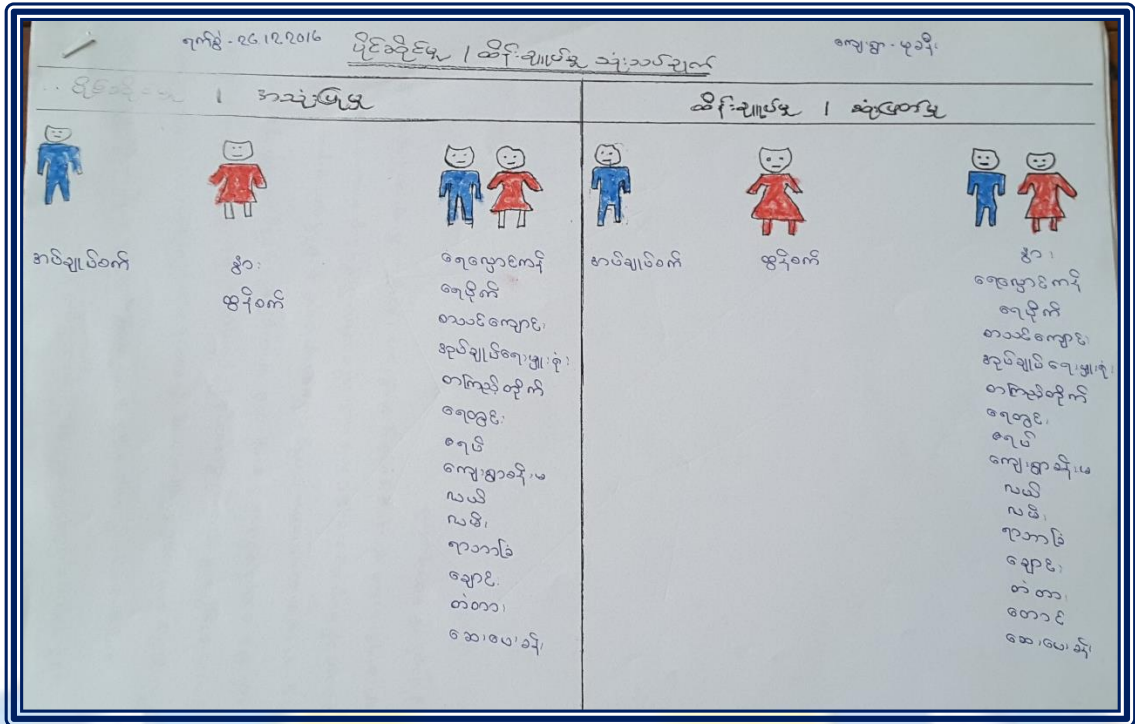 ရက်စွဲ - ၂၆.၁၂.၂၀၁၆
ပိုင်ဆိုင်မှု / ထိန်းချုပ်မှု သုံးသပ်ချက်
ကျေးရွာ -
/ အသုံးပြုမှု
ထိန်းချုပ်မှု / ဆုံးဖြတ်မှု
အပ်ချုပ်စက်
နွား
ထွန်စက်
ရေလှောင်ကန်
ရေပိုက်
စာသင်ကျောင်း
အုပ်ချုပ်ရေးမှူးရုံး
စာကြည့်တိုက်
ရေတွင်း
ဇရပ်
ကျေးရွာခန်းမ
လယ်
လမ်း
ရာဘာခြံ
ချောင်း
တံတား
ဆေးပေးခန်း
အပ်ချုပ်စက်
ထွန်စက်
နွား
ရေလှောင်ကန်
ရေပိုက်
စာသင်ကျောင်း
အုပ်ချုပ်ရေးမှူးရုံး
စာကြည့်တိုက်
ရေတွင်း
ဇရပ်
ကျေးရွာခန်းမ
လယ်
လမ်း
ရာဘာခြံ
ချောင်း
တံတား
တောင်
ဆေးပေးခန်း